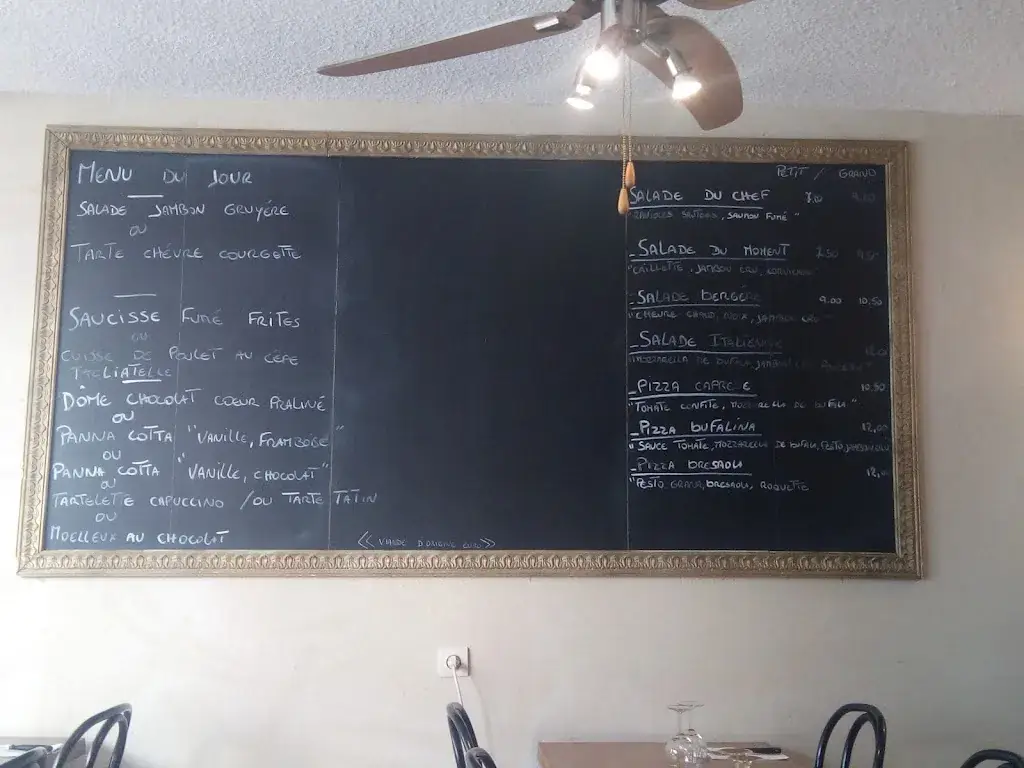 MENU DU JOUR
SALADE JAMBON GRUYÉRE
OU
TARTE CHÉVRE COURGETTE
SAUCISSE FUMÉ FRITES
OU
CUISSE DE POULET AU CÈPE
TAGLIATELLE
DÔME CHOCOLAT COEUR PRALINÉ
OU
PANNA COTTA "VANILLE, FRAMBOISE"
OU
PANNA COTTA "VANILLE, CHOCOLAT"
OU
TARTELETTE CAPUCCINO / OU TARTE TATIN
OU
MOELLEUX AU CHOCOLAT
<< VIANDE D'ORIGINE EURO >>
PETIT / GRAND
SALADE DU CHEF
"RAVIOLES SAUMON FUMÉ"
- SALADE DU MOMENT 7.50 9.50
"CAILLETTE, JAMBON CRU,
- SALADE BERGÉRE 9.00 10,50
"CHEVRE CHAUD, NOIX, JAMBON CRU"
- SALADE ITALIENNE
MOZZARELLA DE BUFALA, JAMBON
- PIZZA 10,50
"TOMATE CONFITE, MOZZARELLA DE BUFALA"
- PIZZA BUFALINA 12,00
"SAUCE TOMATE, MOZZARELLA DE BUFALA, PESTO,
- PIZZA BRESAOLA 12,00
"PESTO GRANA, BRESAOLA, ROQUETTE